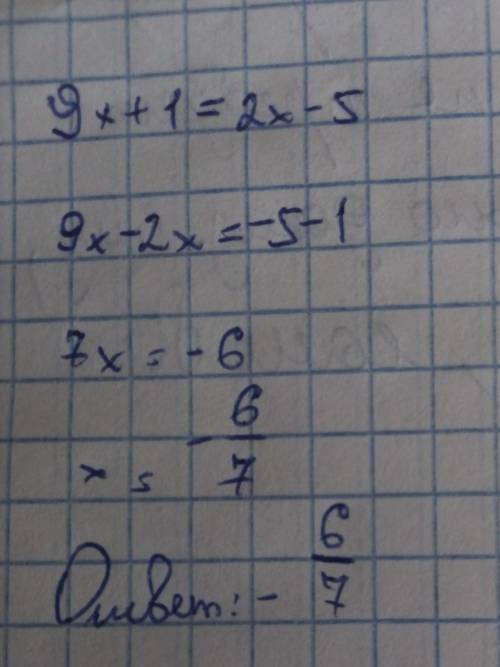 9x+1=2x-5
9x-2x=-5-1
7x=-6
x=-6/7
Ответ: -6/7